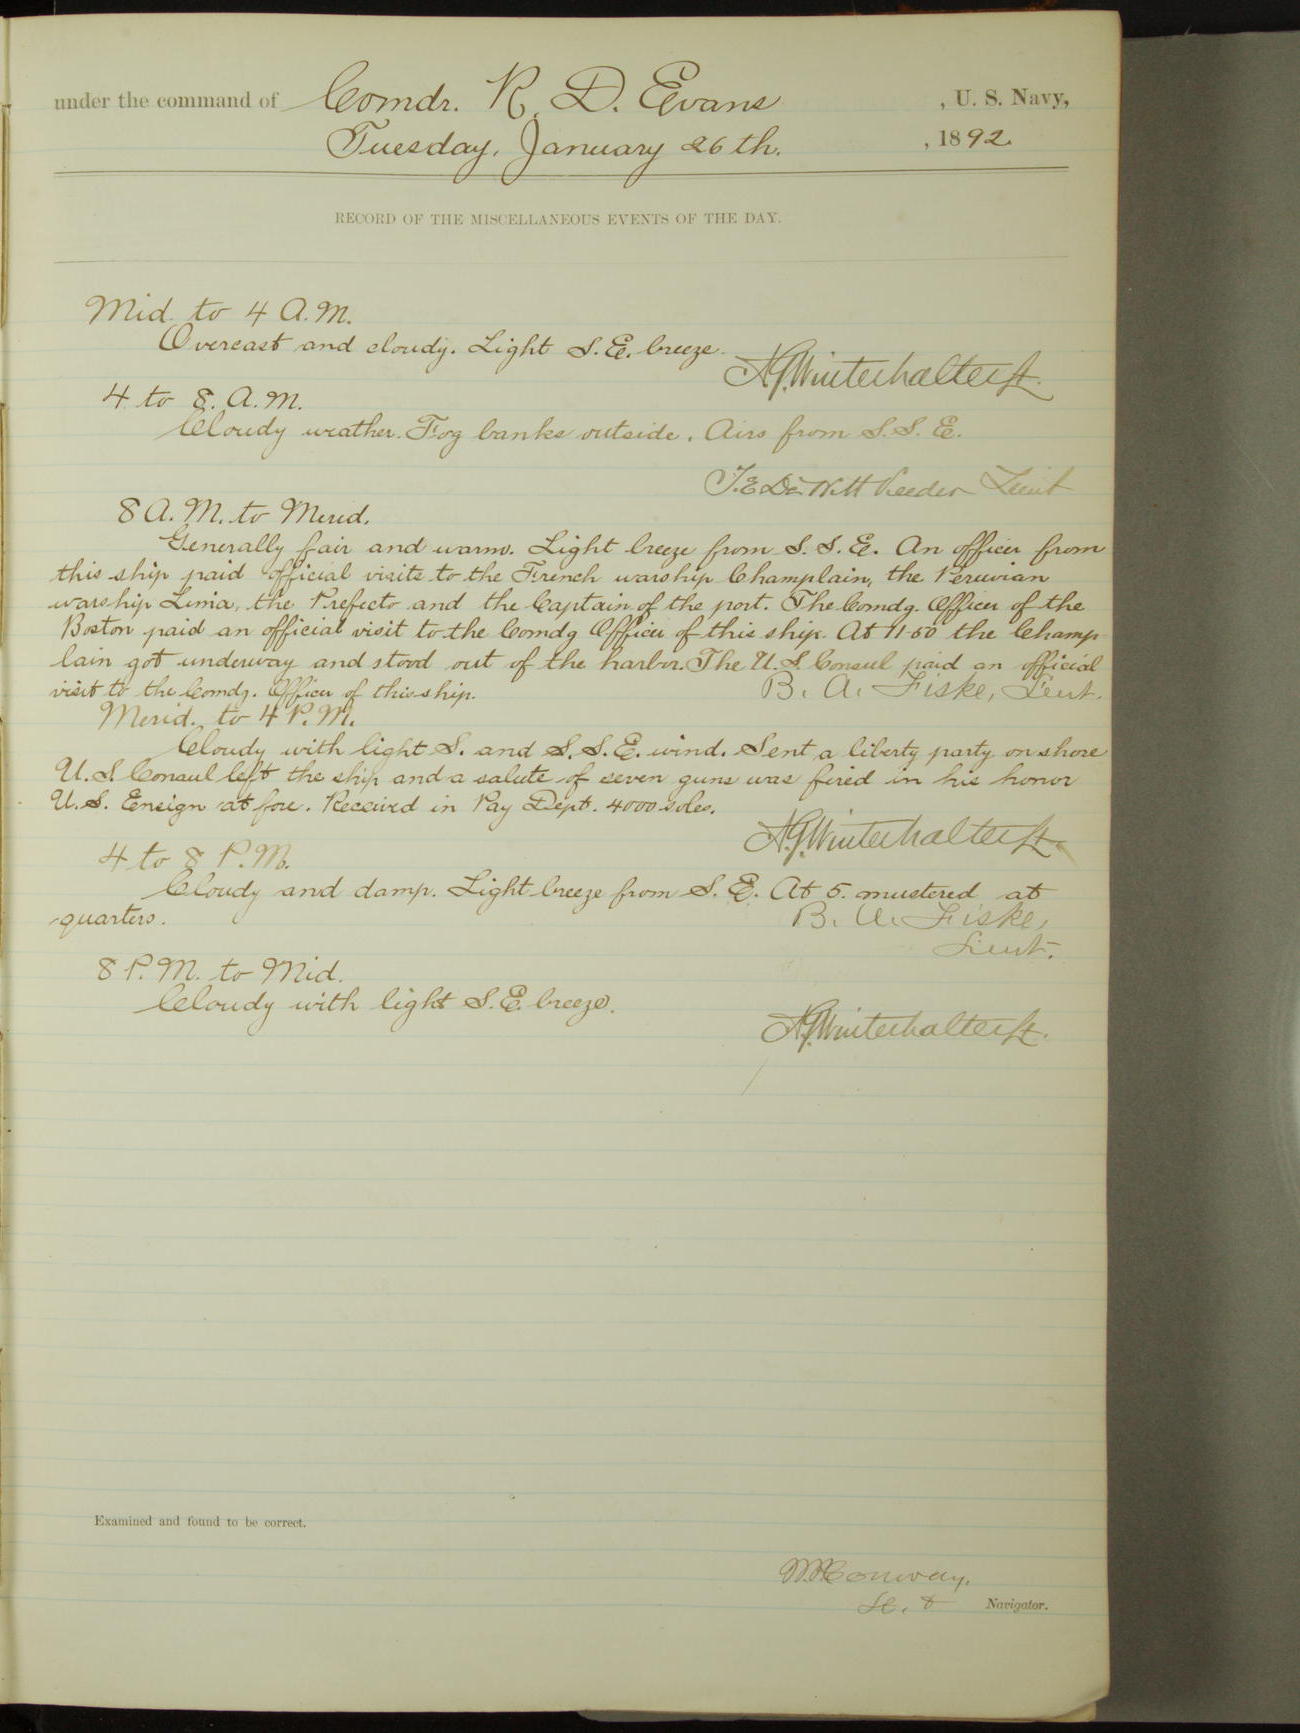 under the command of Comdr. R. D. Evans , U. S. Navy,
Tuesday, January 26th. , 1892.
RECORD OF THE MISCELLANEOUS EVENTS OF THE DAY.
Mid. to 4 A.M.
Overcast and cloudy. Light S.E. breeze.
A.G. Winterhalter Lt.
4 to 8. A.M.
Cloudy weather. Fog banks outside. Airs from S.S.E.
T.E. De Witt Veeder Lieut
8 A.M. to Merid.
Generally fair and warm. Light breeze from S.S.E. An officer from
this ship paid official visits to the French warship Champlain, the Peruvian
warship Lima, the Prefecto and the Captain of the port. The Comdg. Officer of the
Boston paid an official visit to the Comdg Officer of this ship. At 11-50 the Champ-
lain got underway and stood out of the harbor. The U.S. Consul paid an official
visit to the Comdg. Officer of this ship. B. A. Fiske, Lieut.
Merid. to 4 P.M.
Cloudy with light S. and S.S.E. wind. Sent a liberty party on shore
U.S. Consul left the ship and a salute of seven guns was fired in his honor
U.S. Ensign at fore. Received in Pay Dept. 4000 soles.
A.G. Winterhalter Lt.
4 to 8 P.M.
Cloudy and damp. Light breeze from S.E. At 5. mustered at
quarters. B. A. Fiske,
Lieut.
8 P.M. to Mid.
Cloudy with light S.E. breeze.
A.G. Winterhalter Lt.
Examined and found to be correct.
Conway,
Navigator.